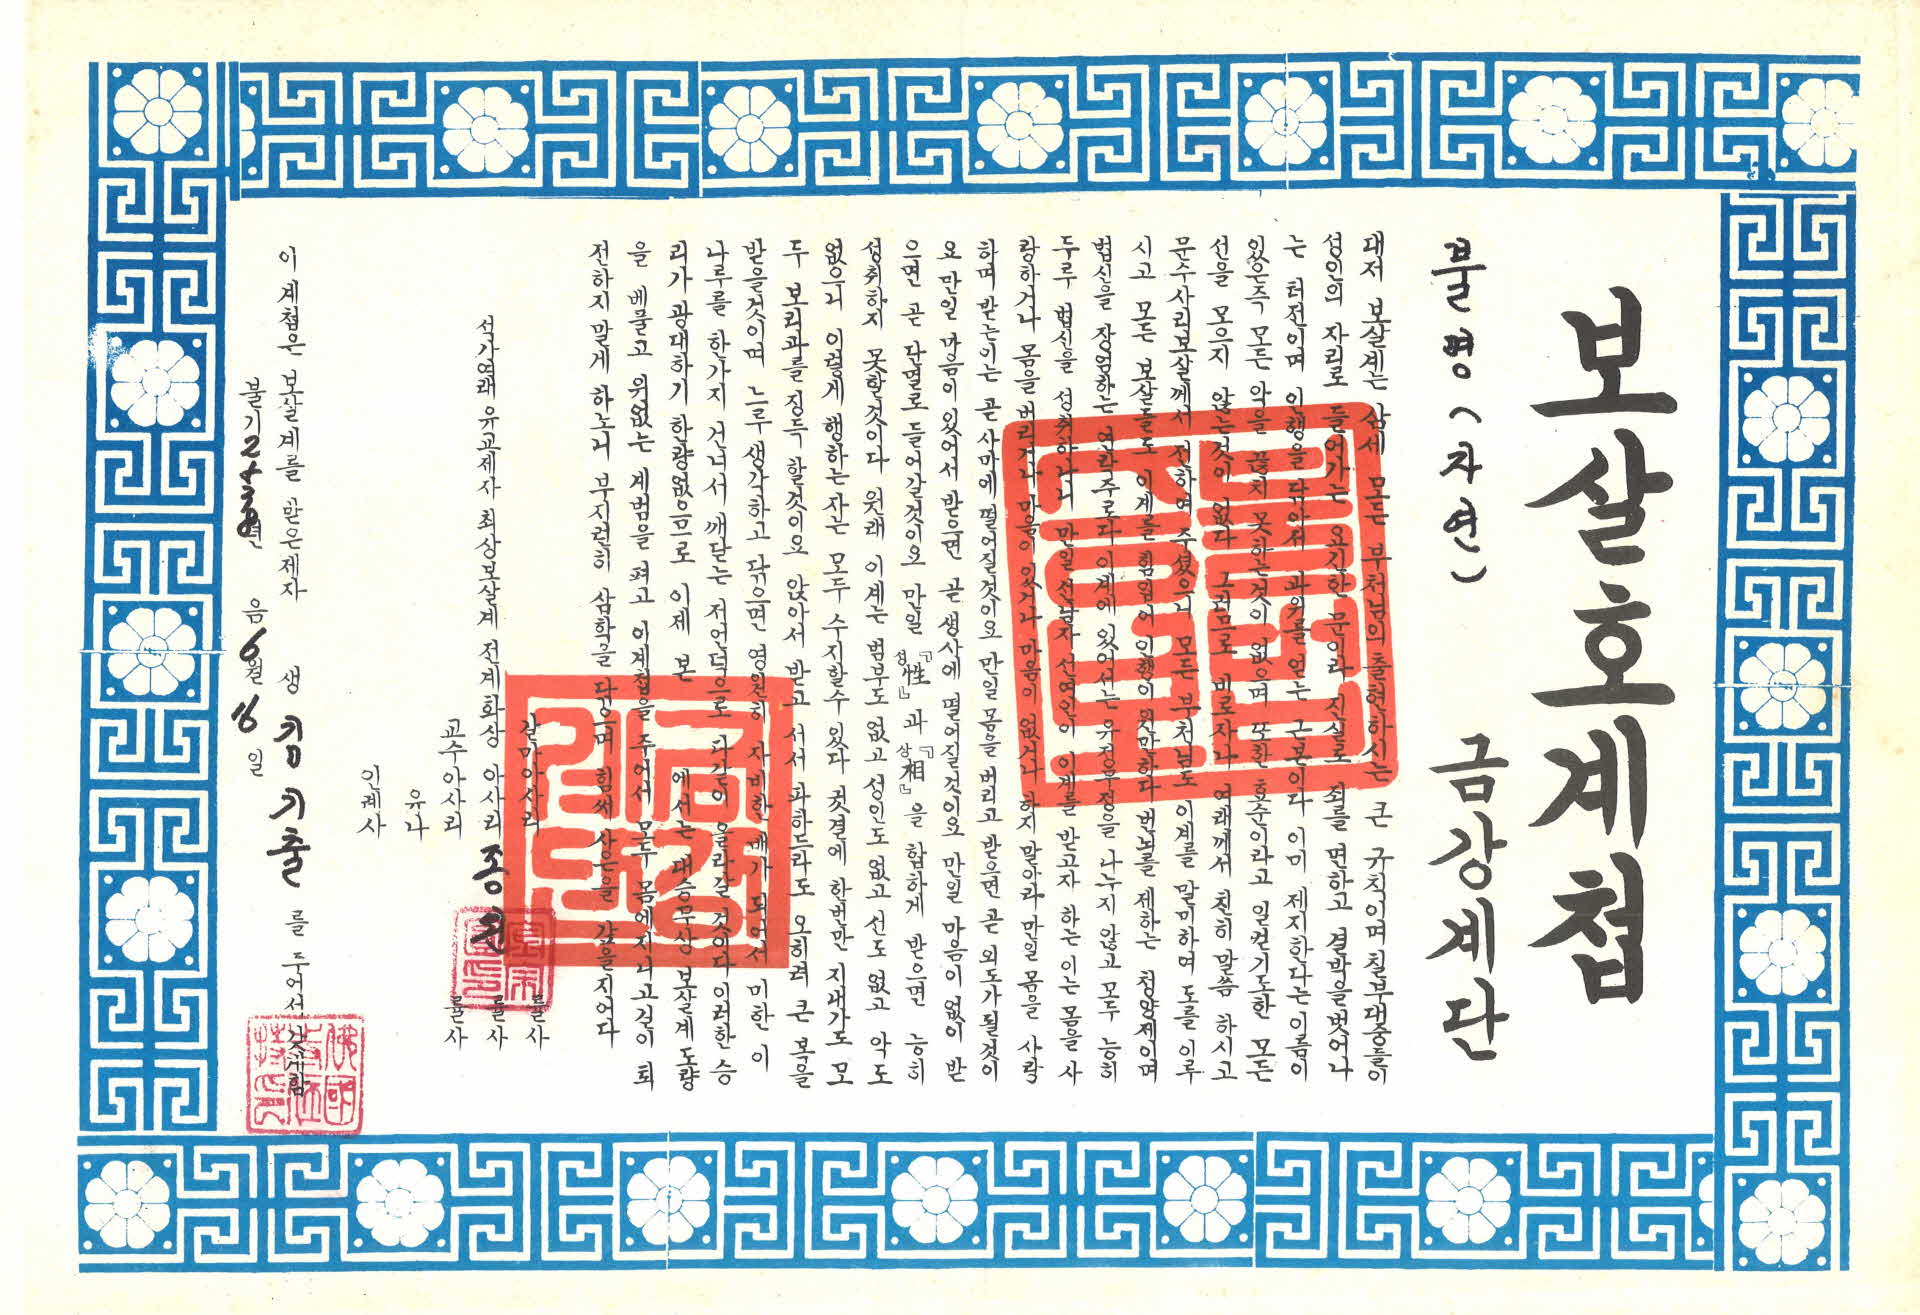 보살호계첩
불명(자연) 금강계단
대저 보살계는 삼세 모든 부처님의 출현하시는 큰 규칙이며 칠부대중들이
성인의 자리로 들어가는 요긴한 문이라 진실로 죄를 면하고 결박을 벗어나
는 터전이며 인행을 닦아서 과위를 얻는 근본이다 이미 제지한다는 이름이
있은즉 모든 악을 끊치 못하는것이 없으며 또한 효순이라고 일컫기도한 모든
선을 모으지 않는것이 없다 그럼으로 비로자나 여래께서 친히 말씀 하시고
문수사리보살께서 전하여 주셨으니 모든 부처님도 이계를 말미하여 도를 이루
시고 모든 보살들도 이계를 힘입어 이행이 원만하다 번뇌를 제하는 청양제이며
법신을 장엄하는 영락주로다 이계에 있어서는 유정무정을 나누지 않고 모두 능히
두루 법신을 성취하나니 만일 선남자 선여인이 이계를 받고자 하는 이는 몸을 사
랑하거나 몸을 버리거나 마음이 있거나 마음이 없거나 하지 말아라 만일 몸을 사랑
하며 받는이는 곧 사마에 떨어질것이요 만일 몸을 버리고 받으면 곧 외도가 될것이
요 만일 마음이 있어서 받으면 곧 생사에 떨어질것이요 만일 마음이 없이 받
으면 곧 단멸로 들어갈것이요 만일 『性성』과 『相상』을 합하게 받으면 능히
성취하지 못할것이다 원래 이계는 범부도 없고 성인도 없고 선도 없고 악도
없으니 이렇게 행하는 자는 모두 수지할수 있다 귓결에 한번만 지내가도 모
두 보리과를 징득 할것이요 앉아서 받고 서서 파하드라도 오히려 큰 복을
받을것이며 느루 생각하고 닦으면 영원히 자비한 배가 되어서 미한 이
나루를 한가지 건너서 깨닫는 저언덕으로 다같이 올라갈 것이다 이러한 승
리가 광대하기 한량없으므로 이제 본 에서는 대승무상 보살계 도량
을 베풀고 위없는 계범을 펴고 이계첩을 주어서 모두 몸에 지니고 길이 퇴
전하지 말게 하노니 부지런히 삼학을 닦으며 힘써 사은을 갚을지어다
갈마아사리 률사
석가여래 유교제자 최상보살계 전계화상 아사리 률사
교수아사리 률사
유나
인례사
이 계첩은 보살계를 받은제자 생 김기출 를 주어서
불기 년 음 6월 16일